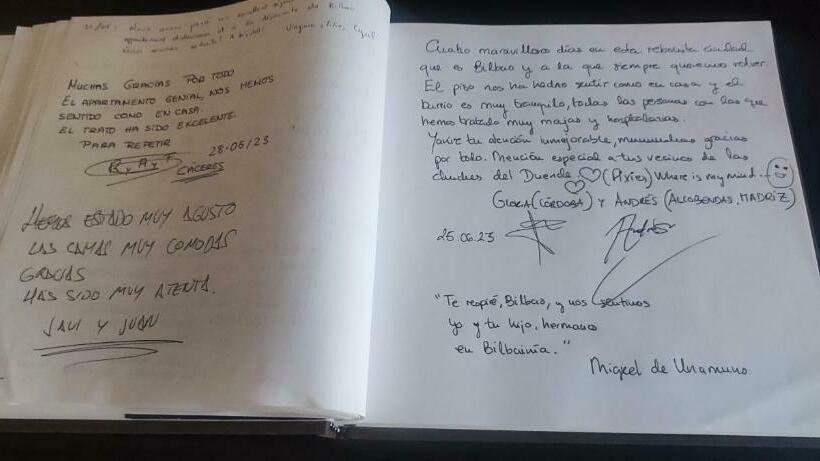 MUCHAS GRACIAS POR TODO
EL APARTAMENTO GENIAL, NOS HEMOS
SENTIDO COMO EN CASA.
EL TRATO HA SIDO EXCELENTE.
PARA REPETIR
28-05/23
B y A y F
CÁCERES
HEMOS ESTADO MUY AGUSTO
LAS CAMAS MUY COMODAS
GRACIAS
HAS SIDO MUY ATENTA.
JAVI Y JUAN
Cuatro maravillosos días en esta rebonita ciudad
que es Bilbao y a la que siempre queremos volver.
El piso nos ha hecho sentir como en casa y el
barrio es muy tranquilo, todas las personas con las que
hemos tratado muy majas y hospitalarias.
tu atención inmejorable, gracias
por todo. Mención especial a tus vecinos de las
del Duende. (Pixies) Where is my mind...
GLORIA (CÓRDOBA) Y ANDRÉS (ALCOBENDAS, MADRIZ)
25.06.23
"Te respiré, Bilbao, y nos sentimos
yo y tu hijo, hermano
en Bilbainía."
Miguel de Unamuno